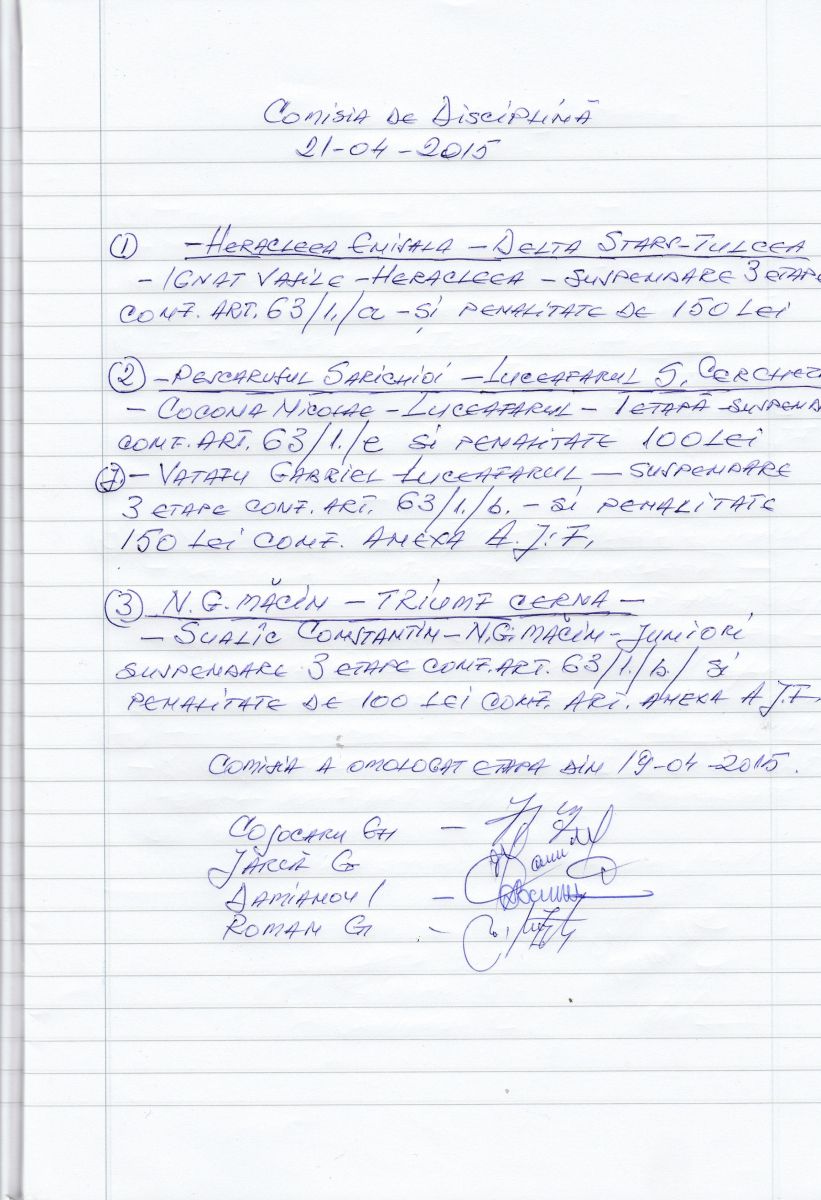 COMISIA DE DISCIPLINĂ
21-04-2015
① -HERACLEEA ENISALA - DELTA STARS-TULCEA
- IGNAT VASILE - HERACLEEA - SUSPENDARE 3 ETAPE
CONF. ART. 63/1./a - ȘI PENALITATE DE 150 LEI
② - PESCARUSUL SARICHIOI - LUCEAFARUL S. CERCHEZ
- COCONA NICOLAE - LUCEAFARUL - 1 ETAPĂ SUSPENDA
CONF. ART. 63/1./e SI PENALITATE 100 LEI
- VATAFU GABRIEL LUCEAFARUL - SUSPENDARE
3 ETAPE CONF. ART. 63/1./b. - SI PENALITATE
150 LEI CONF. ANEXA A.J.F.
③ N.G. MĂCIN - TRIUMF CERNA -
- SUALÎC CONSTANTIN - N.G. MĂCIN - JUNIORI
SUSPENDARE 3 ETAPE CONF. ART. 63/1./b./ SI
PENALITATE DE 100 LEI CONF. ART. ANEXA A.J.F.
COMISIA A OMOLOGAT ETAPA DIN 19-04-2015.
COJOCARU GH -
JÂRCĂ G
DAMIANOV I -
ROMAN G -